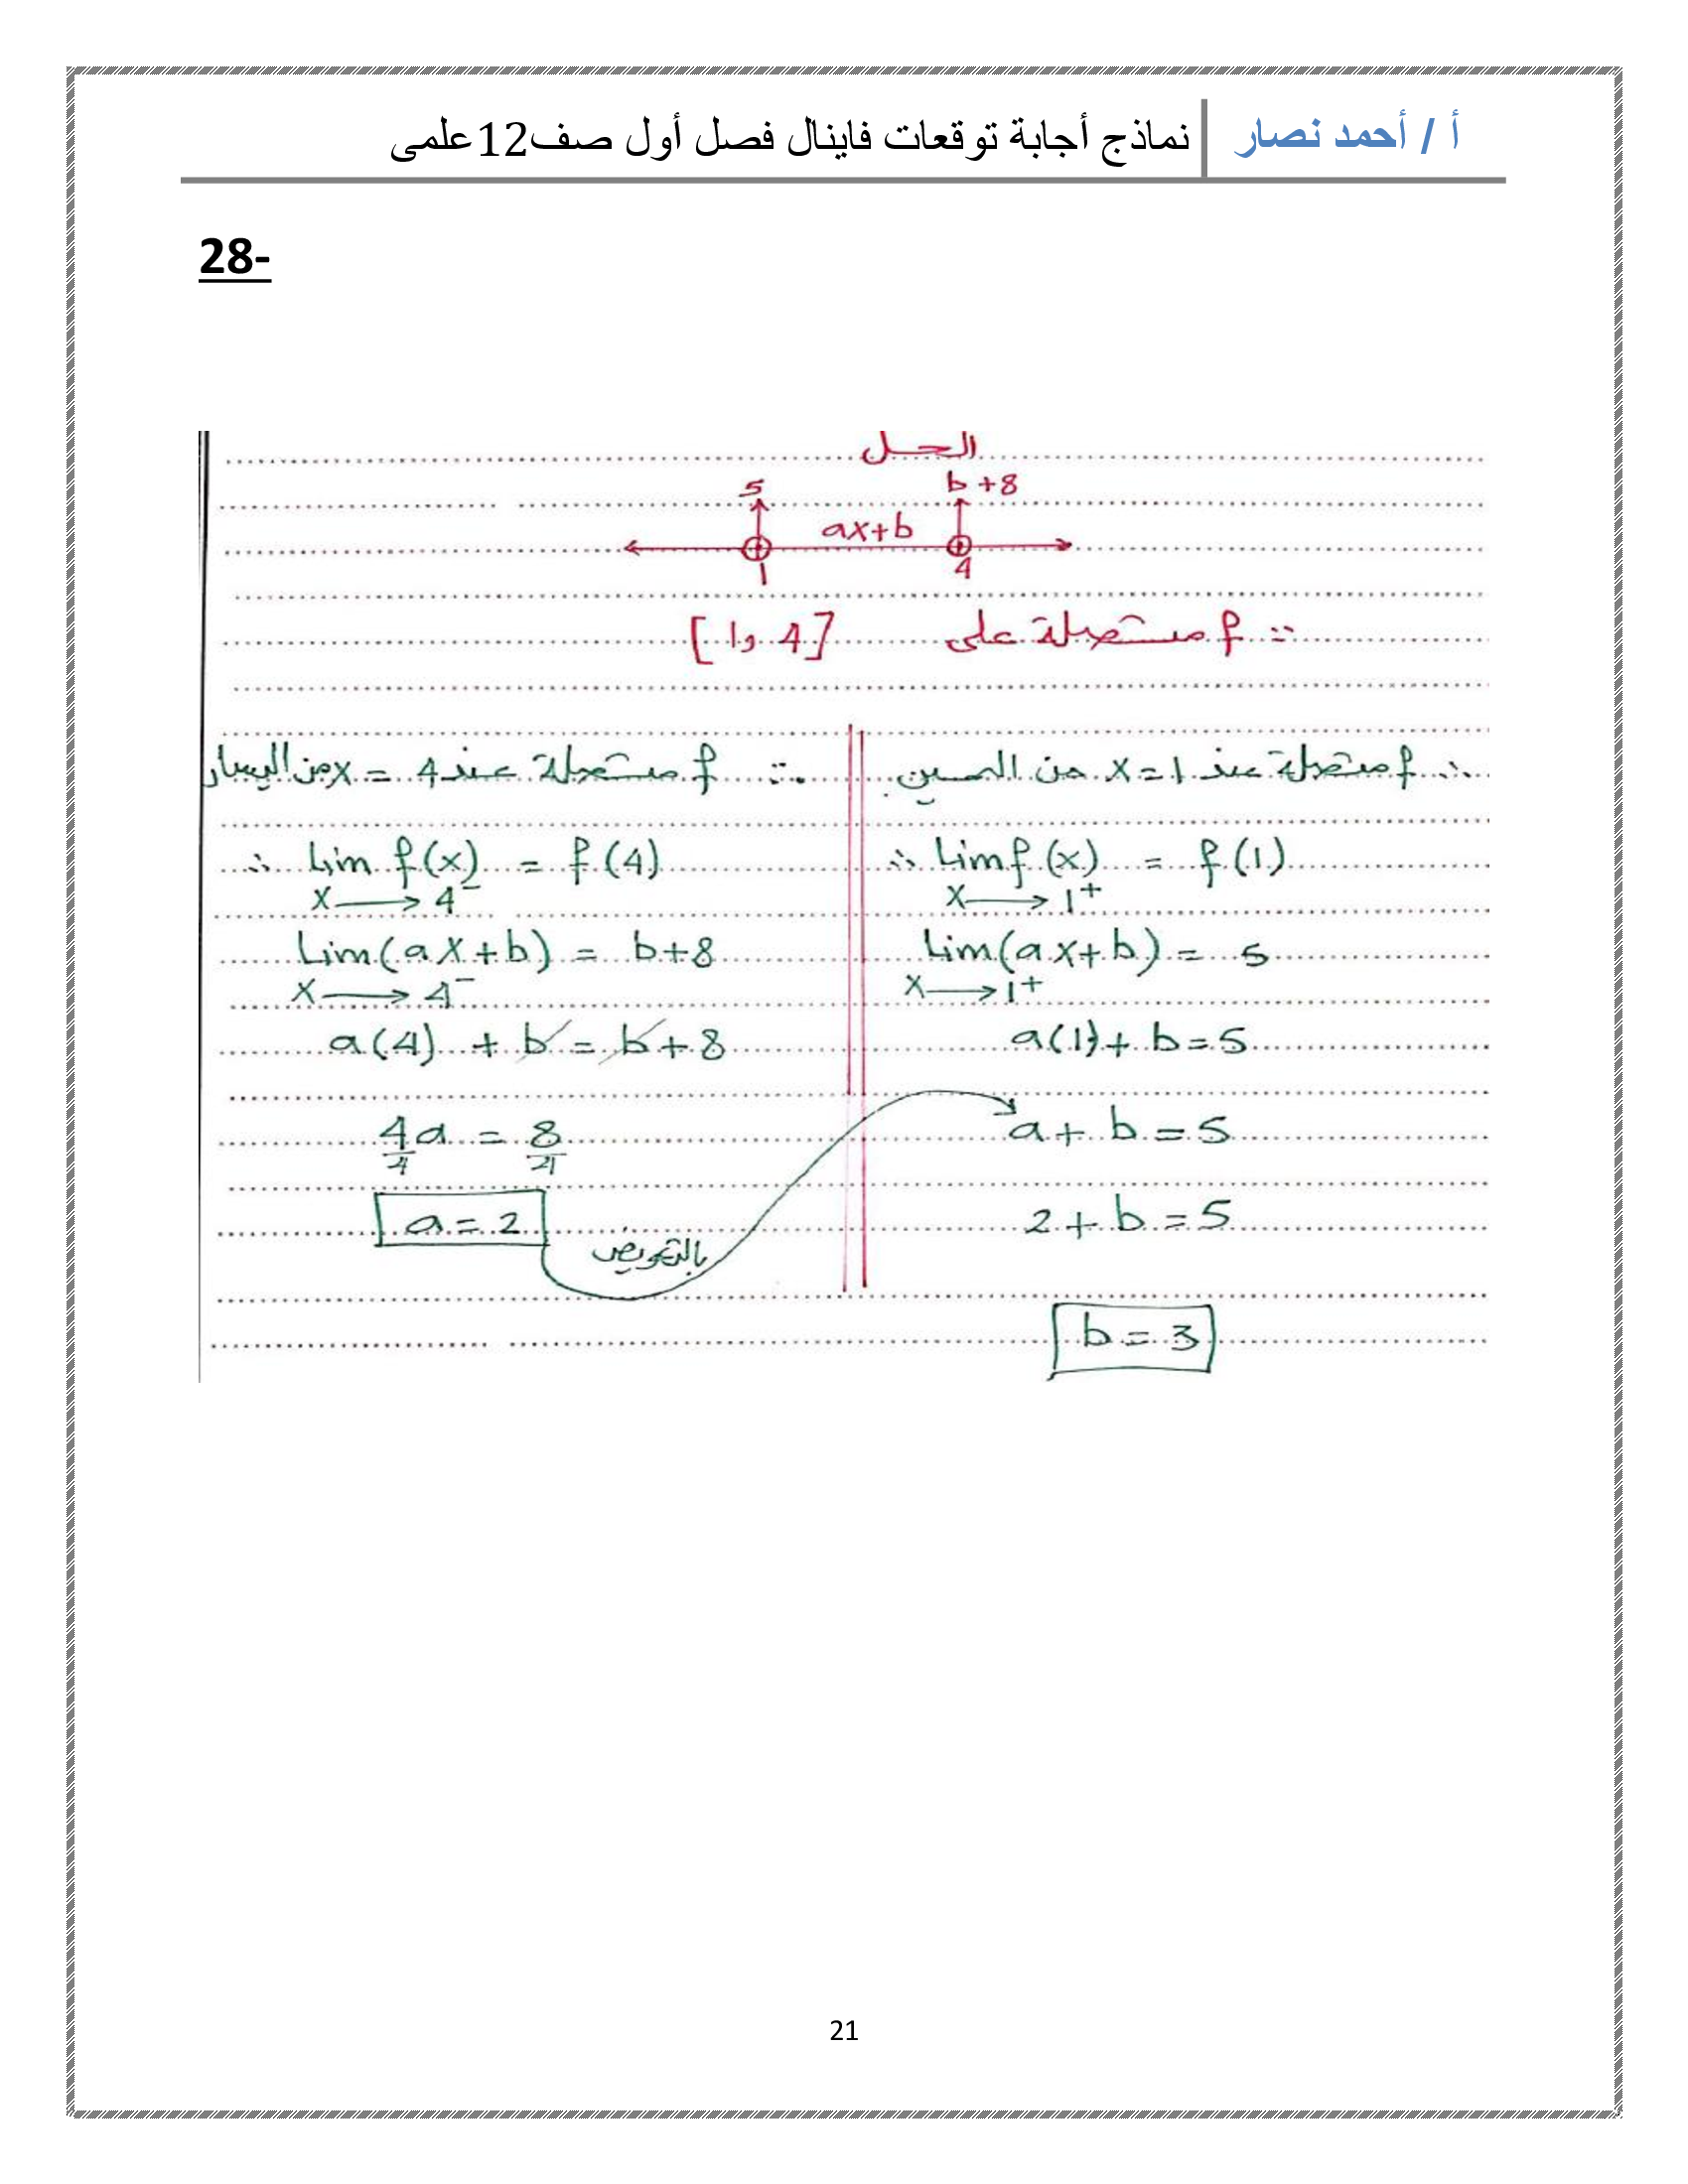 أ / أحمد نصار
نماذج أجابة توقعات فاينال فصل أول صف12علمى
28-
الحل
5 b+8
ax+b
1 4
∵ f متصلة على [1, 4]
∴ f متصلة عند x=1 من اليمين
∴ Lim f(x) = f(1)
x→1⁺
Lim(ax+b) = 5
x→1⁺
a(1)+b=5
a+b=5
2+b=5
b=3
∵ f متصلة عند 4 = x من اليسار
∴ Lim f(x) = f(4)
x→4⁻
Lim(ax+b) = b+8
x→4⁻
a(4)+b=b+8
4a/4 = 8/4
a=2
بالتعويض
21